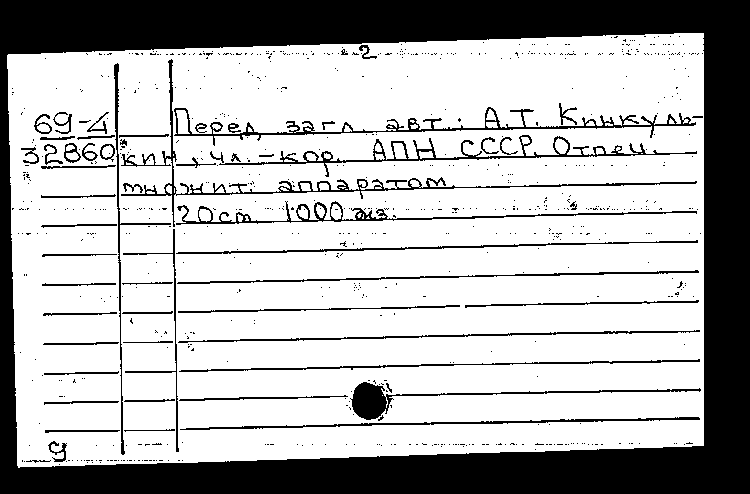 2
69-4 Перед загл. авт.: А.Т. Кинкуль-
32860 кин, чл.-кор. АПН СССР. Отпеч.
множит. аппаратом.
20см. 1000 экз.
g